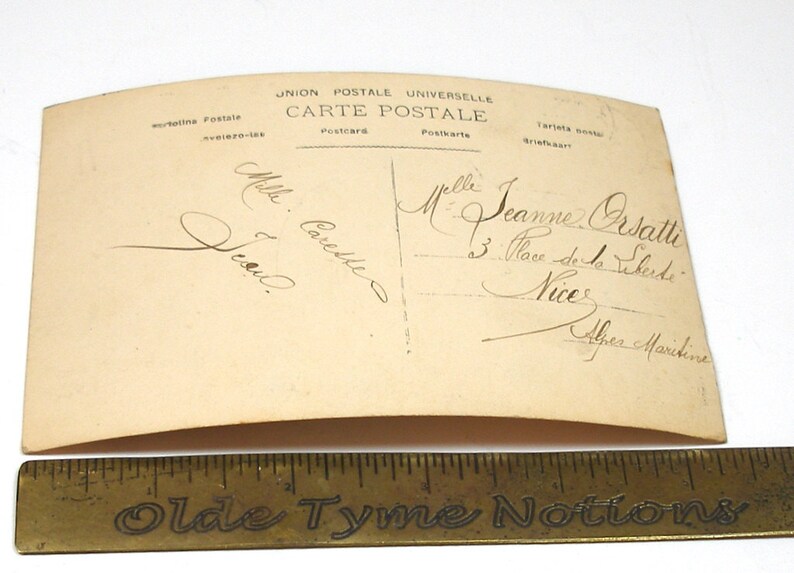 UNION POSTALE UNIVERSELLE
CARTE POSTALE
Cartolina Postale
Tarjeta postal
Levelezö-lap Postcard Postkarte Briefkaart
Mille Caresses
Jean.
Melle Jeanne Orsatti
3 Place de la Liberté
Nice
Alpes Maritime
1 2
Olde Tyme Notions